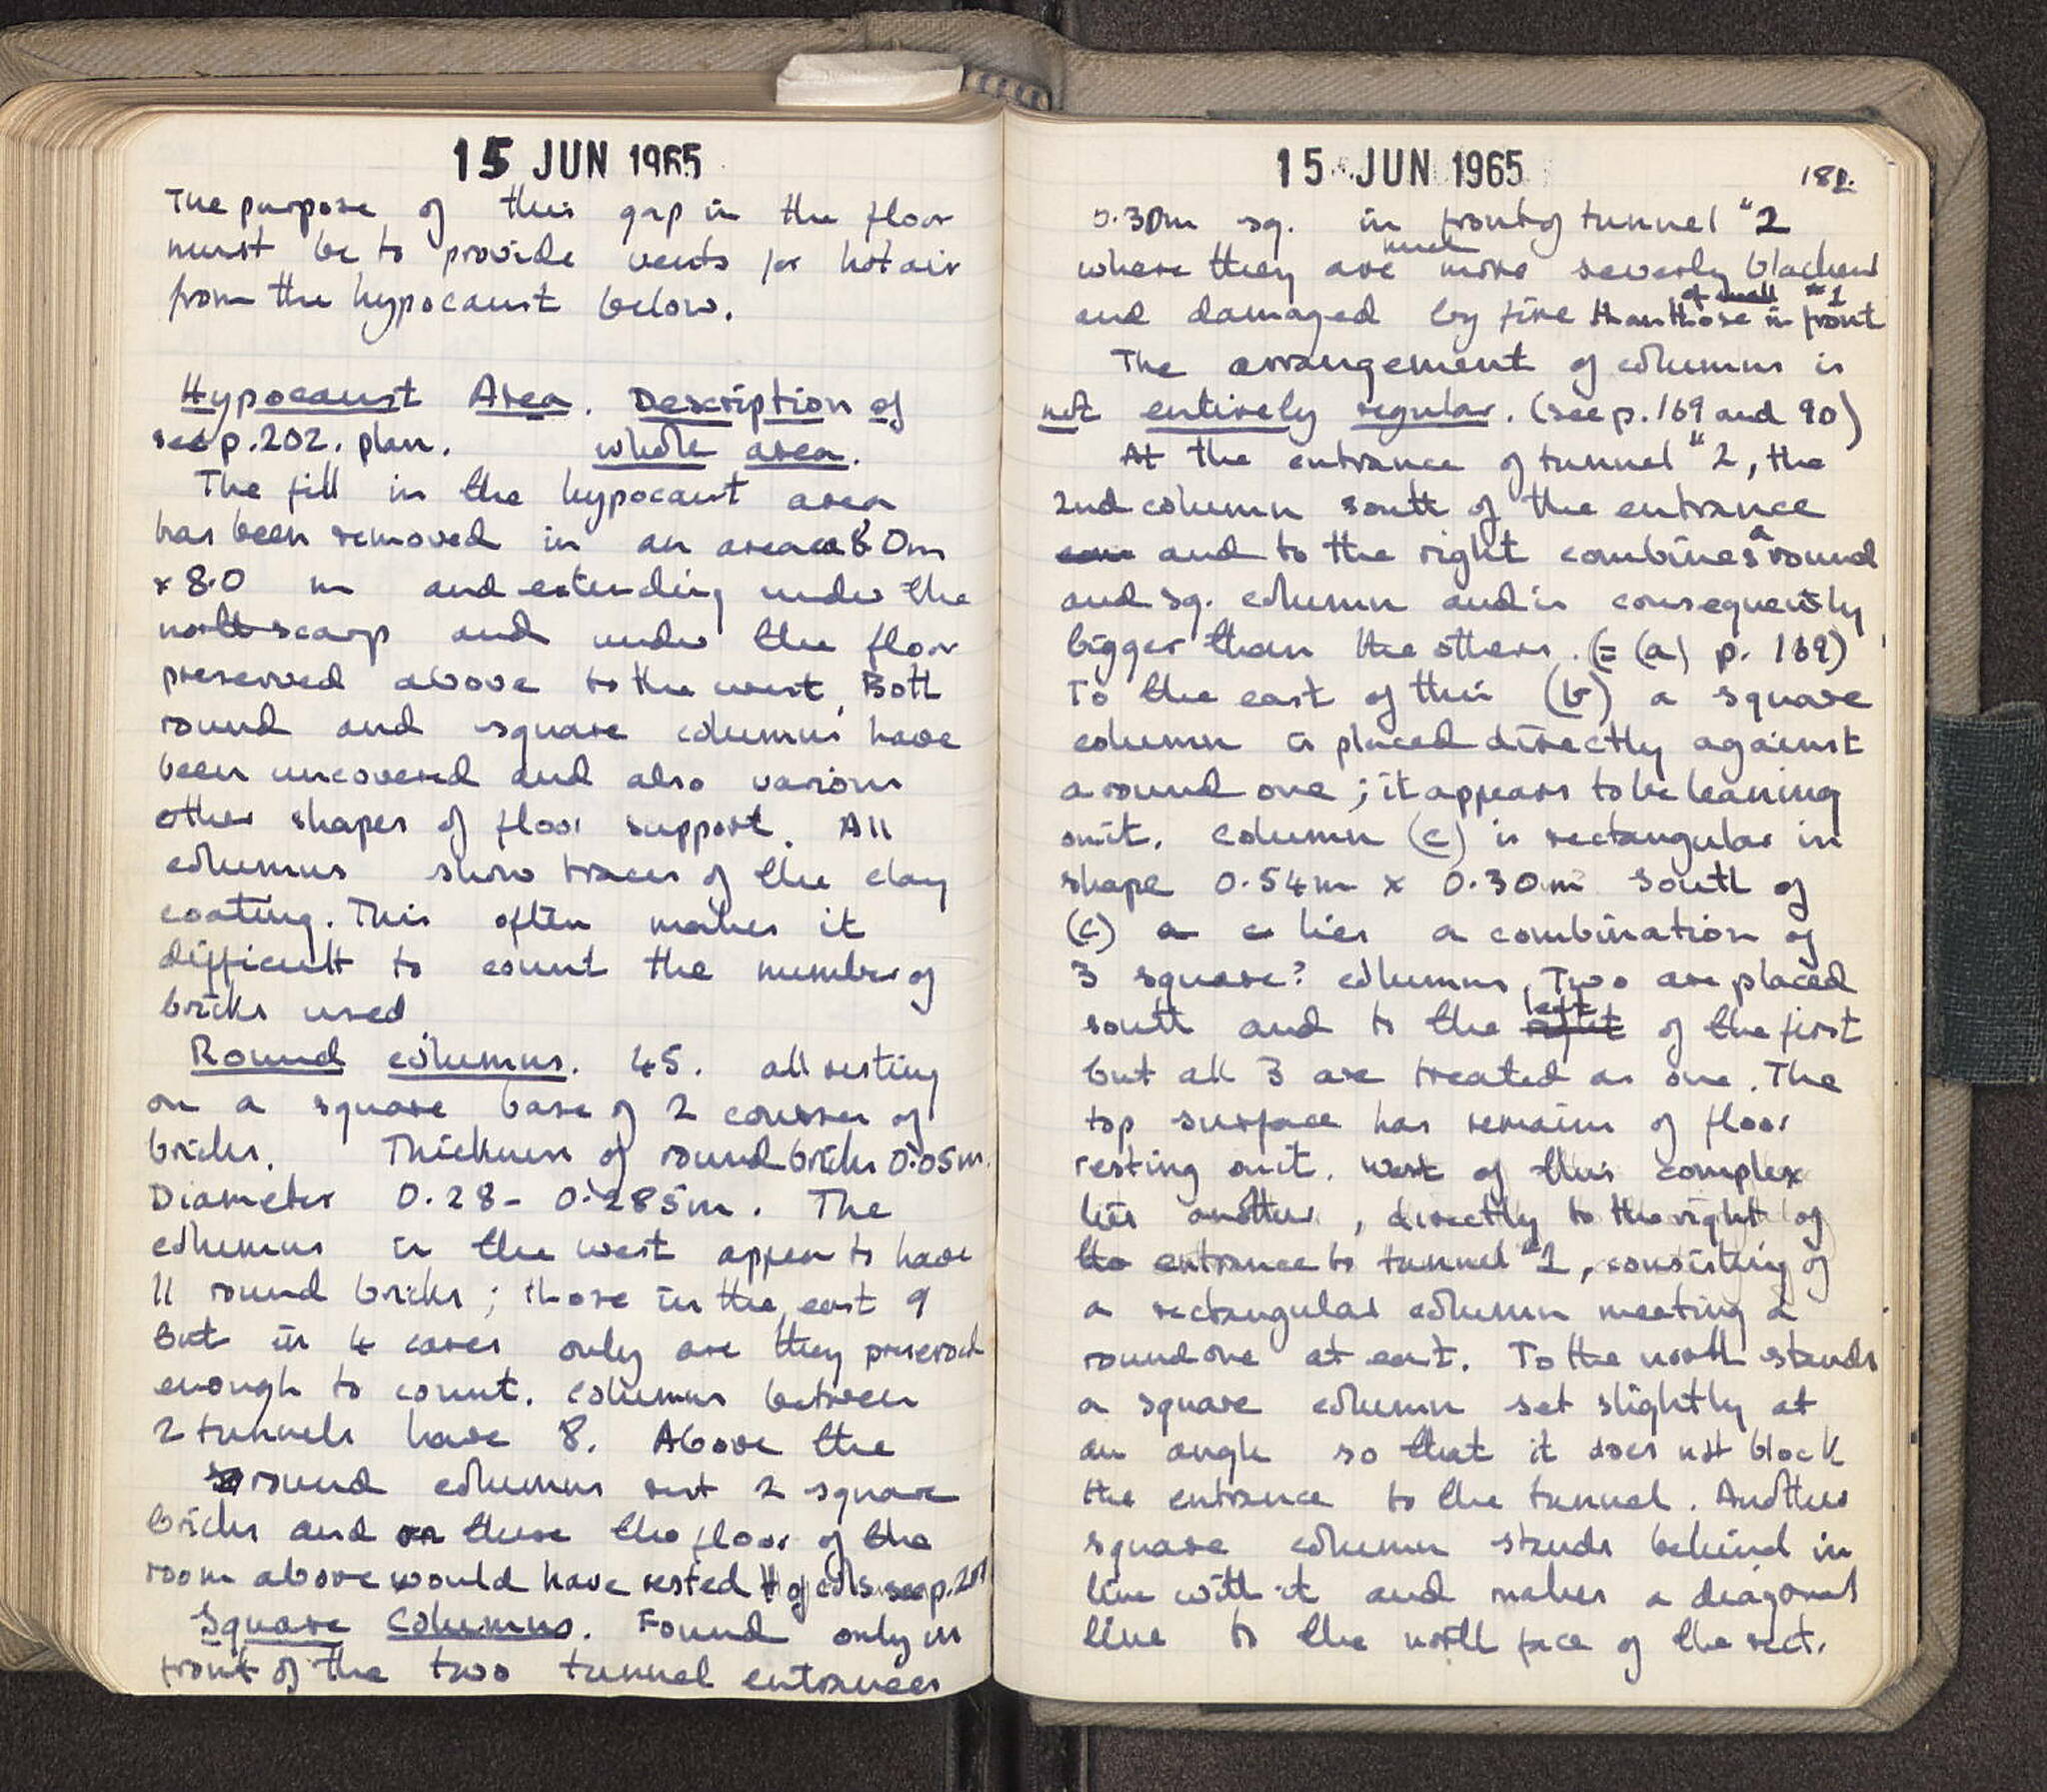 15 JUN 1965
The purpose of this gap in the floor
must be to provide vents for hot air
from the hypocaust below.
Hypocaust Area. Description of
see p.202. plan. whole area.
The fill in the hypocaust area
has been removed in an area 8.0m
x 8.0 m and extending under the
north scarp and under the floor
preserved above to the west. Both
round and square columns have
been uncovered and also various
other shapes of floor support. All
columns show traces of the clay
coating. This often makes it
difficult to count the number of
bricks used.
Round columns. 45. all resting
on a square base of 2 courses of
bricks. Thickness of round bricks 0.05m.
Diameter 0.28 - 0.285m. The
columns in the west appear to have
11 round bricks; those in the east 9
But in 4 cases only are they preserved
enough to count. Columns between
2 tunnels have 8. Above the
round columns rest 2 square
bricks and on these the floor of the
room above would have rested H of cols. see p.201
Square Columns. Found only in
front of the two tunnel entrances
15 JUN 1965
182.
0.30m sq. in front of tunnel #2
where they are much more severly blackend
and damaged by fire than those in front of #1
The arrangement of columns is
not entirely regular. (see p.169 and 90)
At the entrance of tunnel #2, the
2nd column south of the entrance
and to the right combines a round
and sq. column and is consequently
bigger than the others. (= (a) p. 169)
To the east of this (b) a square
column is placed directly against
a round one; it appears to be leaning
on it. Column (c) is rectangular in
shape 0.54m x 0.30m South of
(c) a c lies a combination of
3 square? columns, Two are placed
south and to the left right of the first
but all 3 are treated as one. The
top surface has remains of floor
resting on it. West of this complex
lies another, directly to the right of
the entrance to tunnel #1, consisting of
a rectangular column meeting a
round one at east. To the north stands
a square column set slightly at
an angle so that it does not block
the entrance to the tunnel. Another
square column stands behind in
line with it and makes a diagonal
line to the north face of the rect.